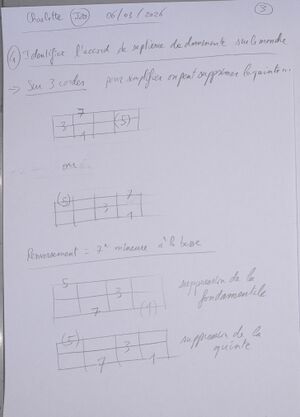 Charlotte Juju 06/03/2026 3
4 Identifier l'accord de septième de dominante sur le manche
→ Sur 3 cordes pour simplifier on peut supprimer la quinte
7
3 (5)
1
ou
(5) 7
3
1
Renversement = 7e mineure à la basse
5
3
7 (1)
suppression de la
fondamentale
(5)
3
7 1
suppression de la
quinte